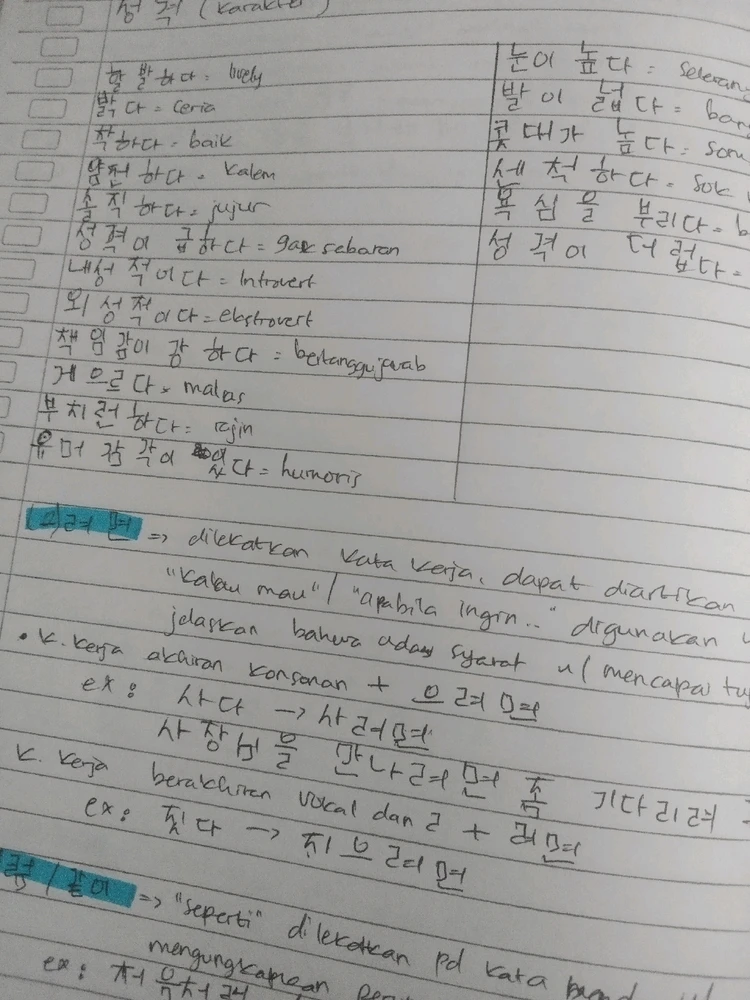 성격 (karakter)
활발하다 = lively
밝다 = ceria
착하다 = baik
얌전하다 = kalem
솔직하다 = jujur
성격이 급하다 = gak sabaran
내성적이다 = Introvert
외성적이다 = ekstrovert
책임감이 강하다 = bertanggujawab
게으르다 = malas
부지런하다 = rajin
유머감각이 있다 = humoris
눈이 높다 =
발이 넓다 =
콧대가 높다 =
세척하다 = sok
욕심을 부리다 =
성격이 더럽다 =
(으)려면 => dilekatkan kata kerja, dapat diartikan
"kalau mau" / "apabila ingin.." digunakan
jelaskan bahwa aday syarat u/ mencapai
• k. kerja akhiran konsonan + 으려면
ex: 사다 → 사려면
사장님을 만나려면 좀 기다리려
k. kerja berakhiran vokal dan ㄹ + 려면
ex: 짓다 → 지으려면
/ 같이 => "seperti" dilekatkan pd kata
mengungkapkan
ex: